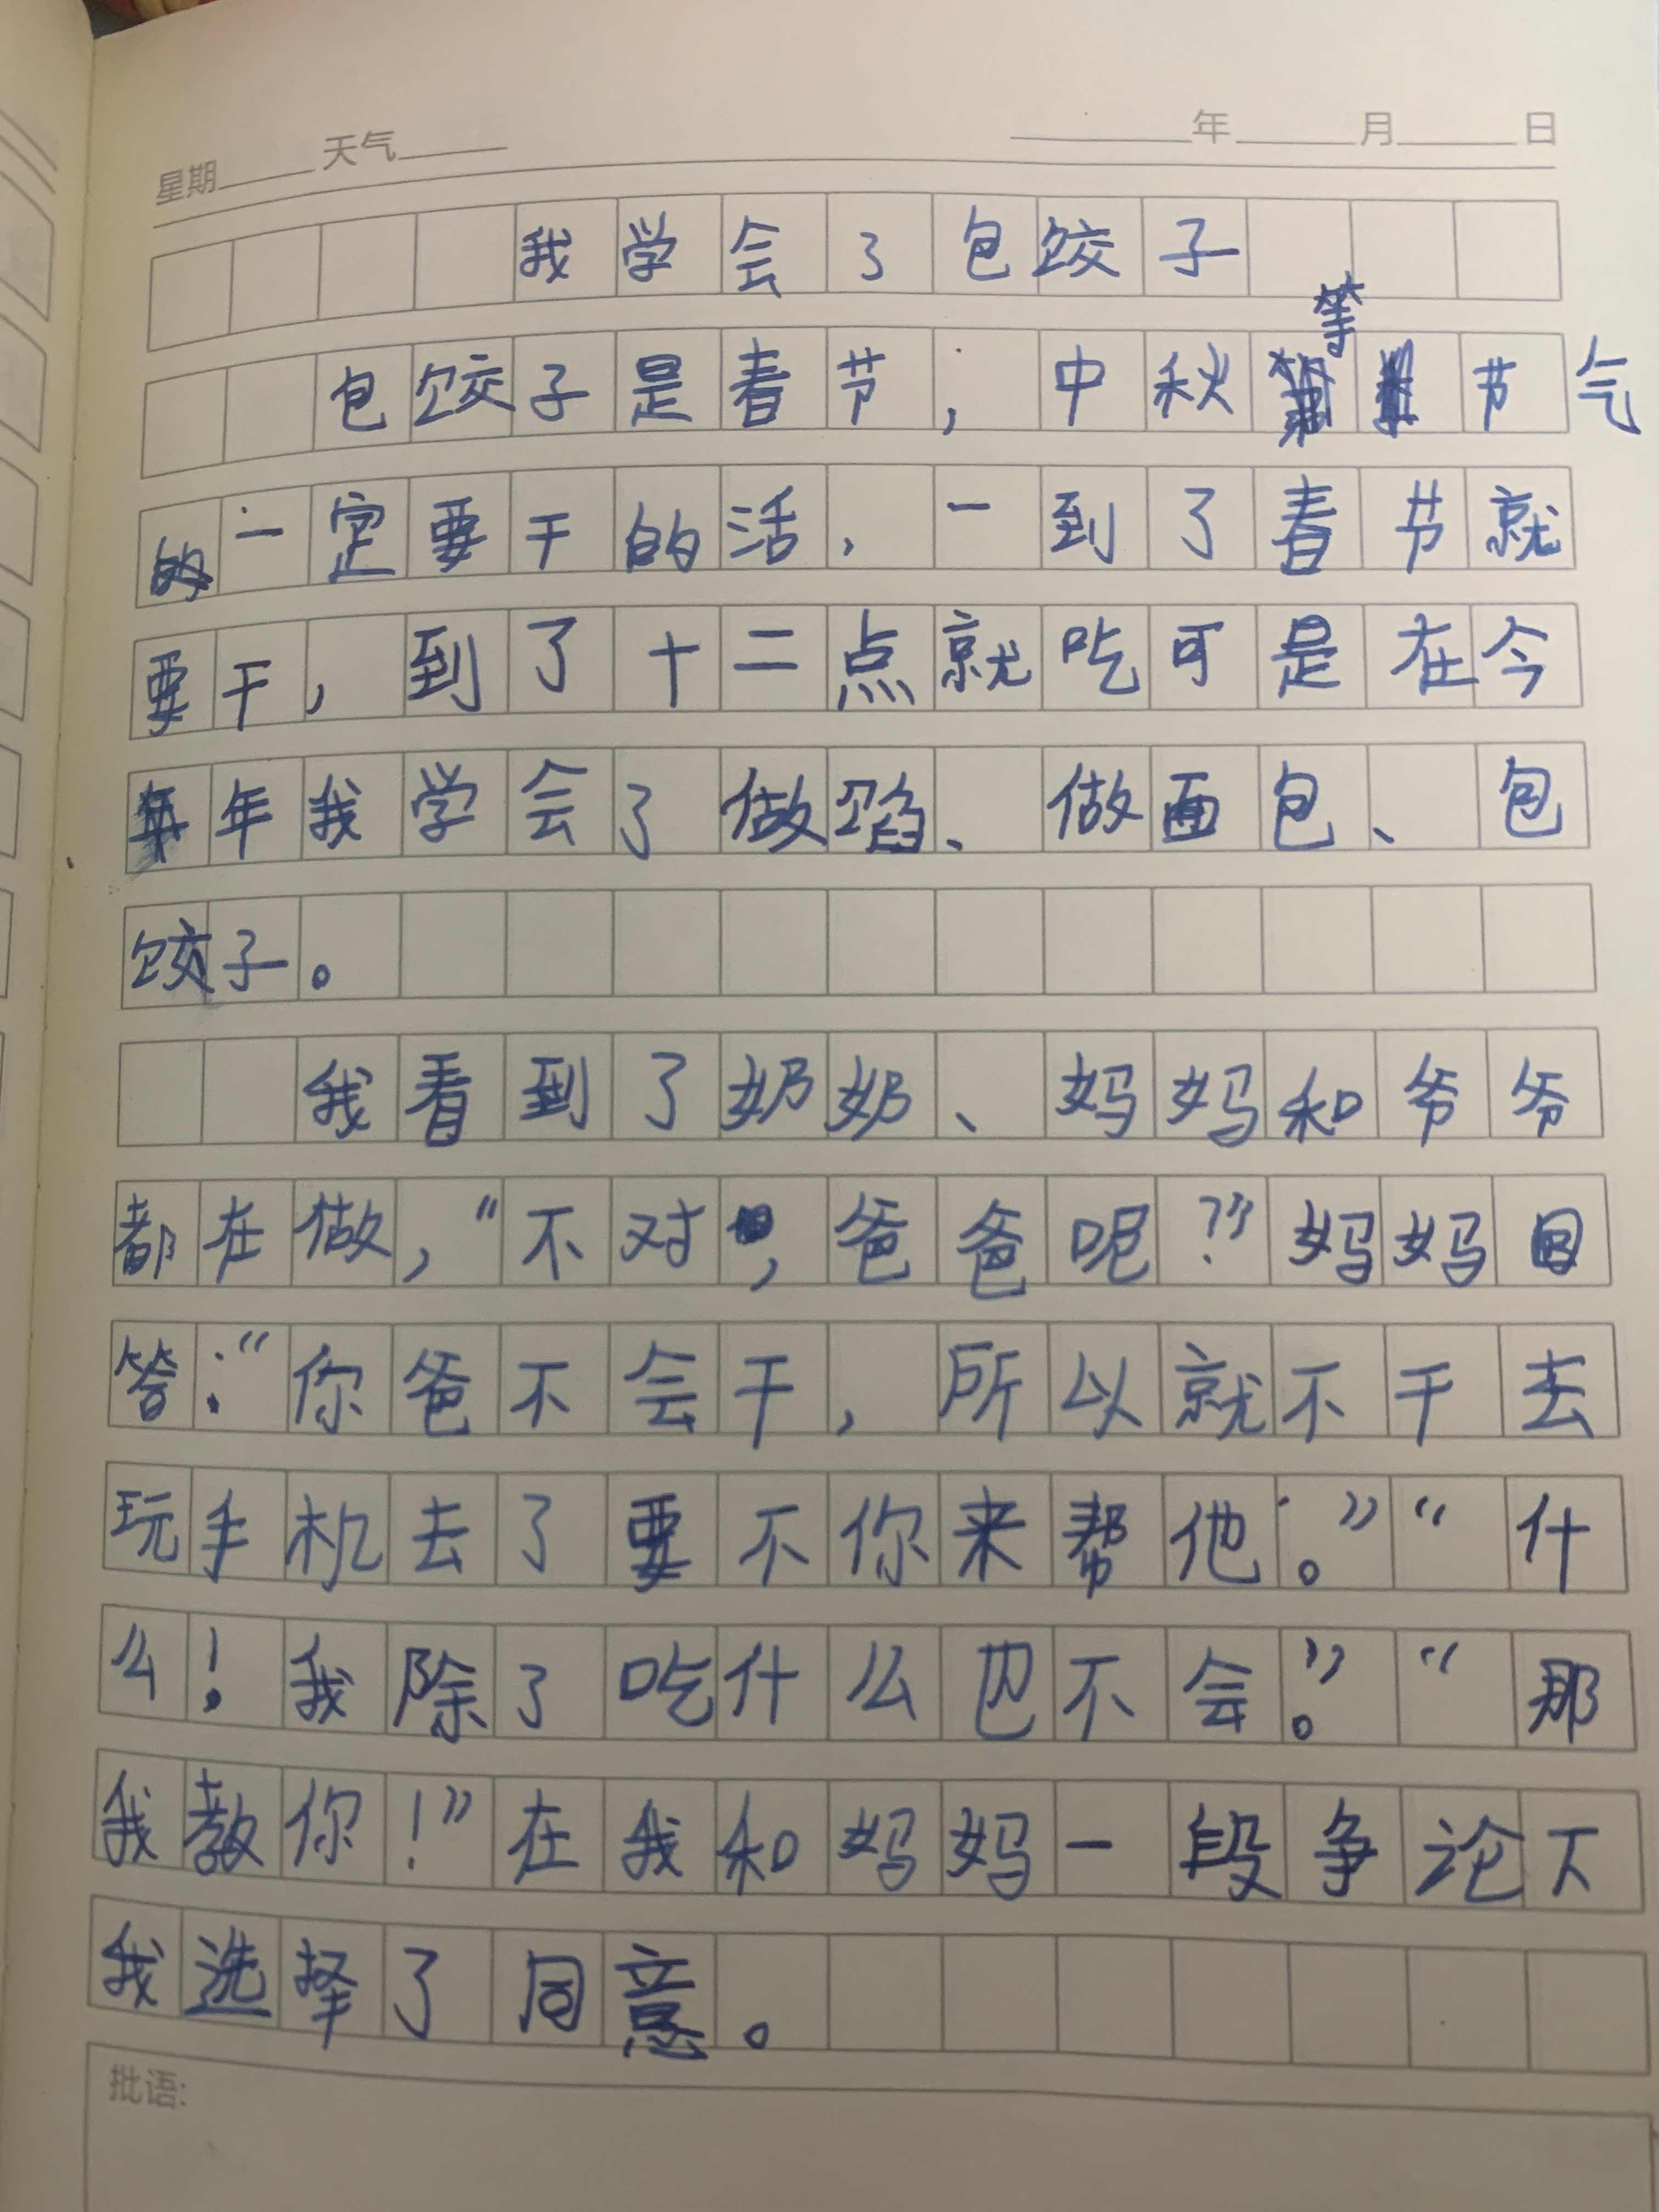 星期 天气 年 月 日
我学会了包饺子
包饺子是春节，中秋等节气
的一定要干的活，一到了春节就
要干，到了十二点就吃可是在今
年我学会了做馅、做面包、包
饺子。
我看到了奶奶、妈妈和爷爷
都在做，“不对，爸爸呢？”妈妈回
答：“你爸不会干，所以就不干去
玩手机去了要不你来帮他。”“什
么！我除了吃什么也不会。”“那
我教你！”在我和妈妈一段争论下
我选择了同意。
批语: